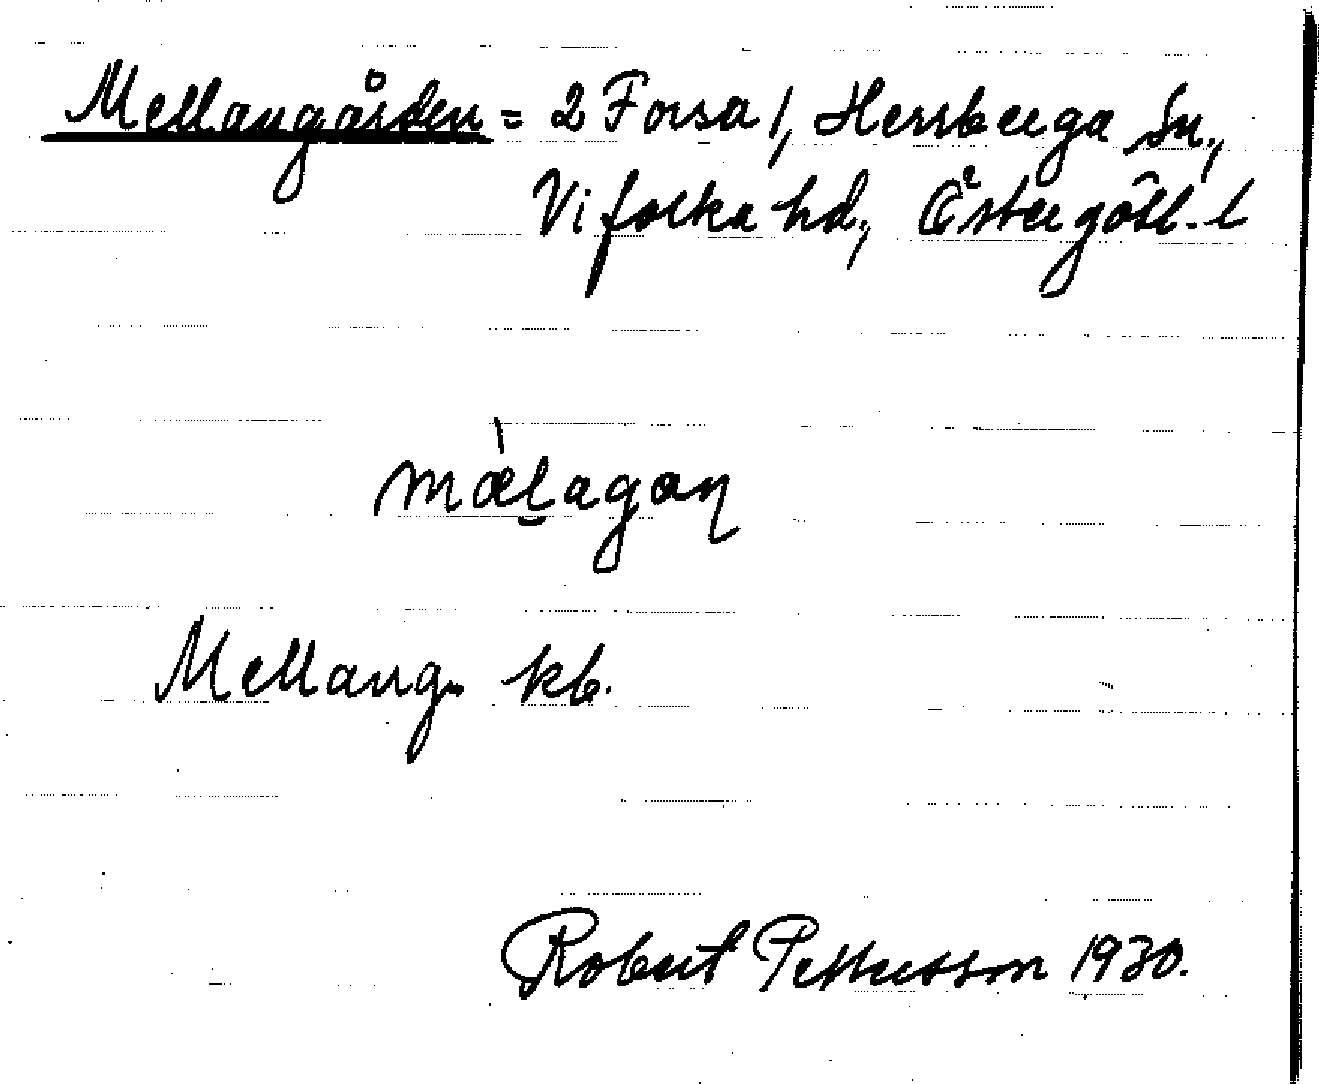 Mellangården = 2 Forsa /, Herrberga sn.,
Vifolka hd., Östergötl. l
mæ̀l̯agaɳ
Mellang. kb.
Robert Pettersson 1930.